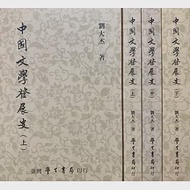 劉大杰 著
中國文學發展史(上)
臺灣 學士書局 印行
中國文學發展史(上)
劉大杰 著
學士書局 印行
中國文學發展史(中)
劉大杰 著
學士書局 印行
中國文學發展史(下)
劉大杰 著
學士書局 印行